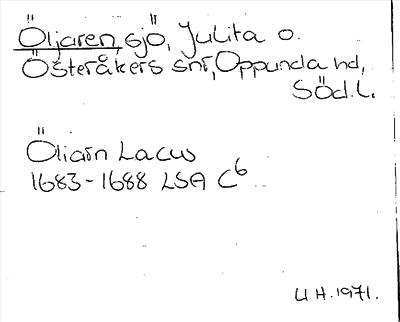 Öljaren, sjö, Julita o.
Österåkers snr, Oppunda hd,
Söd.l.
Öliarn Lacus
1683-1688 LSA C6
U.H.1971.